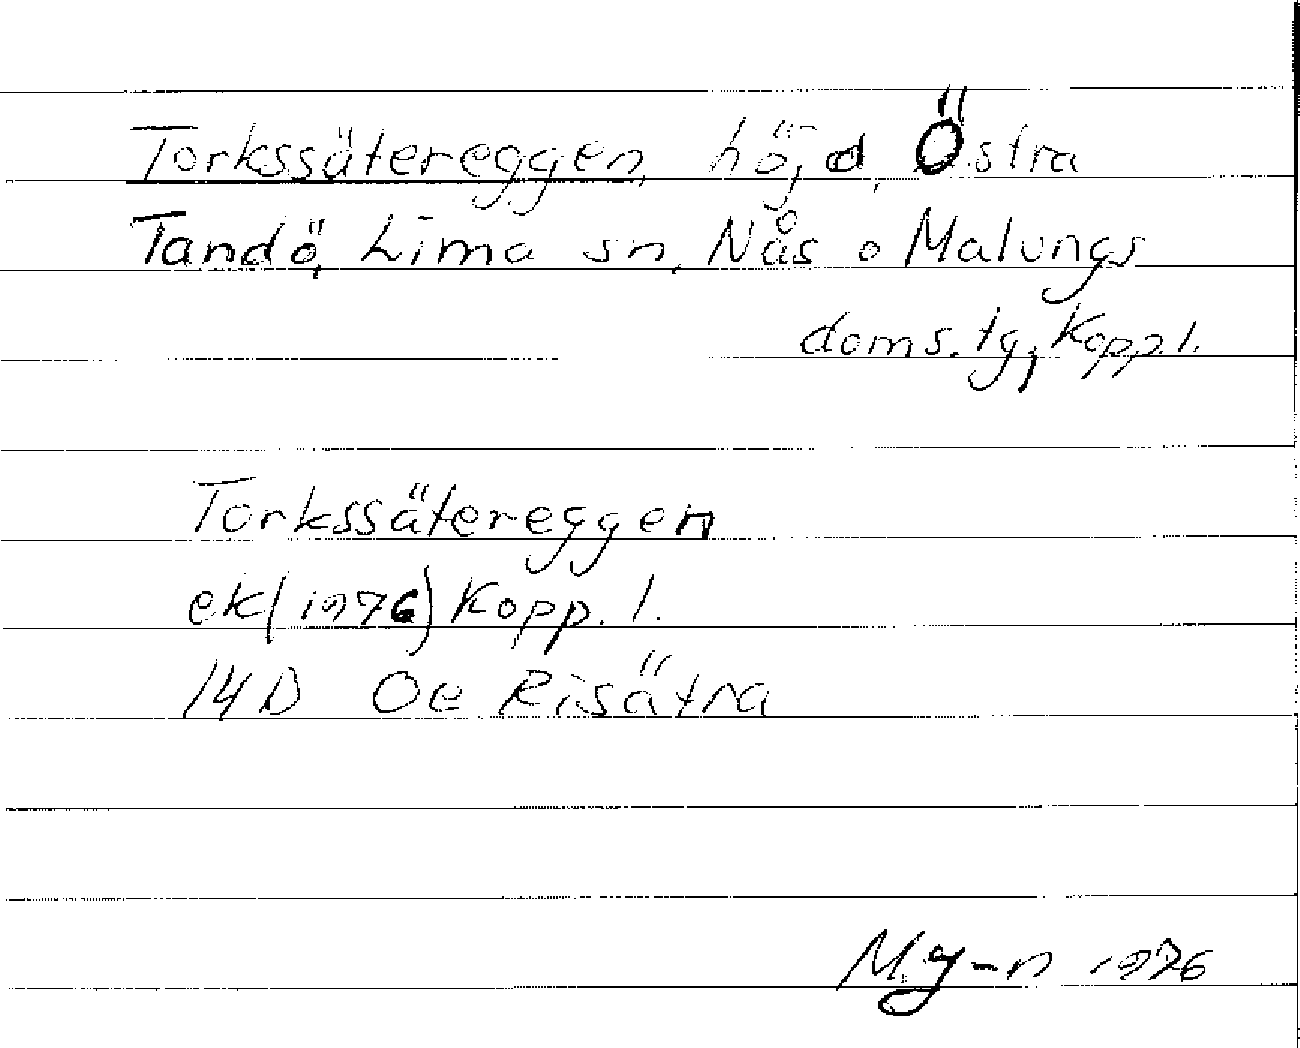 Torkssätereggen, höjd, Östra
Tandö, Lima sn, Nås o Malungs
doms. tg, Kopp. l.
Torkssätereggen
ek (1976) Kopp. l.
14D Oe Risätra
M.g-n 1976